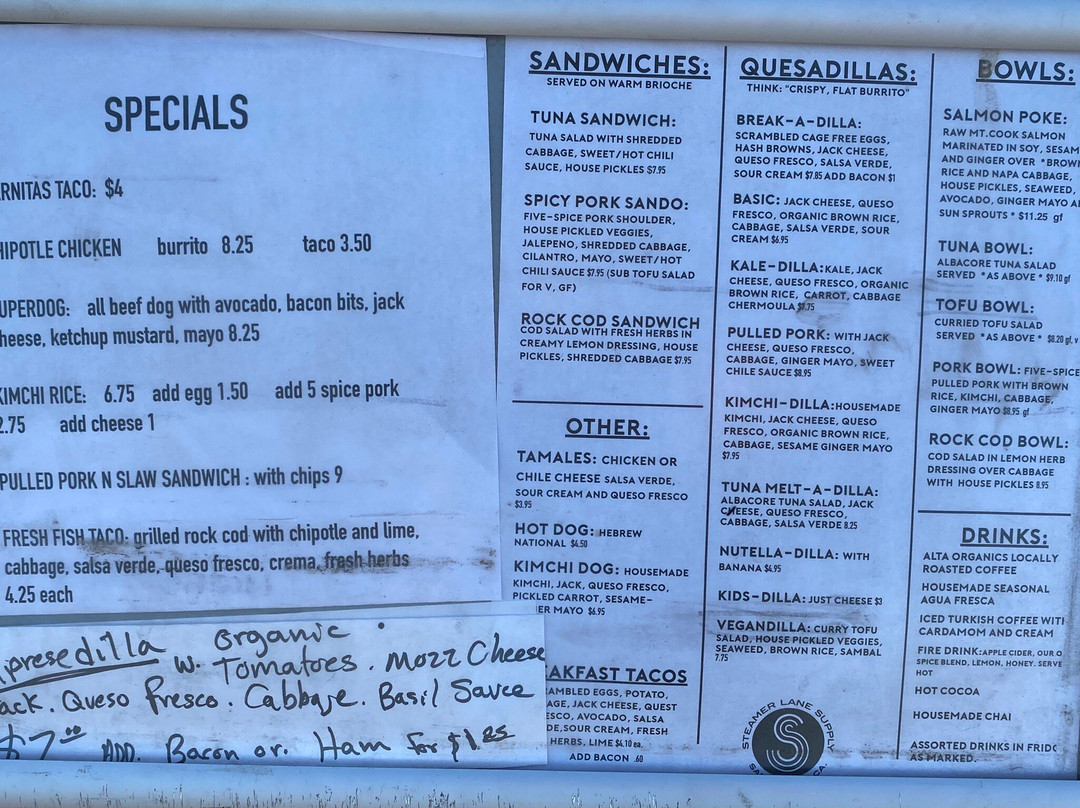 SPECIALS
RNITAS TACO: $4
HIPOTLE CHICKEN burrito 8.25 taco 3.50
UPERDOG: all beef dog with avocado, bacon bits, jack
heese, ketchup mustard, mayo 8.25
KIMCHI RICE: 6.75 add egg 1.50 add 5 spice pork
2.75 add cheese 1
PULLED PORK N SLAW SANDWICH : with chips 9
FRESH FISH TACO: grilled rock cod with chipotle and lime,
cabbage, salsa verde, queso fresco, crema, fresh herbs
4.25 each
presedilla w. organic Tomatoes. Mozz Cheese
ack. Queso fresco. Cabbage. Basil Sauce
$7.00 ADD. Bacon or. Ham for $1.25
SANDWICHES:
SERVED ON WARM BRIOCHE
TUNA SANDWICH:
TUNA SALAD WITH SHREDDED
CABBAGE, SWEET/HOT CHILI
SAUCE, HOUSE PICKLES $7.95
SPICY PORK SANDO:
FIVE-SPICE PORK SHOULDER,
HOUSE PICKLED VEGGIES,
JALEPENO, SHREDDED CABBAGE,
CILANTRO, MAYO, SWEET/HOT
CHILI SAUCE $7.95 (SUB TOFU SALAD
FOR V, GF)
ROCK COD SANDWICH
COD SALAD WITH FRESH HERBS IN
CREAMY LEMON DRESSING, HOUSE
PICKLES, SHREDDED CABBAGE $7.95
OTHER:
TAMALES: CHICKEN OR
CHILE CHEESE SALSA VERDE,
SOUR CREAM AND QUESO FRESCO
$3.95
HOT DOG: HEBREW
NATIONAL $4.50
KIMCHI DOG: HOUSEMADE
KIMCHI, JACK, QUESO FRESCO,
PICKLED CARROT, SESAME-
ER MAYO $6.95
AKFAST TACOS
AMBLED EGGS, POTATO,
AGE, JACK CHEESE, QUEST
ESCO, AVOCADO, SALSA
DE, SOUR CREAM, FRESH
HERBS, LIME $4.10 ea.
ADD BACON .60
QUESADILLAS:
THINK: "CRISPY, FLAT BURRITO"
BREAK-A-DILLA:
SCRAMBLED CAGE FREE EGGS,
HASH BROWNS, JACK CHEESE,
QUESO FRESCO, SALSA VERDE,
SOUR CREAM $7.85 ADD BACON $1
BASIC: JACK CHEESE, QUESO
FRESCO, ORGANIC BROWN RICE,
CABBAGE, SALSA VERDE, SOUR
CREAM $6.95
KALE-DILLA: KALE, JACK
CHEESE, QUESO FRESCO, ORGANIC
BROWN RICE, CARROT, CABBAGE
CHERMOULA
PULLED PORK: WITH JACK
CHEESE, QUESO FRESCO,
CABBAGE, GINGER MAYO, SWEET
CHILE SAUCE $8.95
KIMCHI-DILLA: HOUSEMADE
KIMCHI, JACK CHEESE, QUESO
FRESCO, ORGANIC BROWN RICE,
CABBAGE, SESAME GINGER MAYO
$7.95
TUNA MELT-A-DILLA:
ALBACORE TUNA SALAD, JACK
CHEESE, QUESO FRESCO,
CABBAGE, SALSA VERDE 8.25
NUTELLA-DILLA: WITH
BANANA $4.95
KIDS-DILLA: JUST CHEESE $3
VEGANDILLA: CURRY TOFU
SALAD, HOUSE PICKLED VEGGIES,
SEAWEED, BROWN RICE, SAMBAL
7.75
STEAMER LANE SUPPLY
S
CA.
BOWLS:
SALMON POKE:
RAW MT.COOK SALMON
MARINATED IN SOY, SESAM
AND GINGER OVER *BROW
RICE AND NAPA CABBAGE,
HOUSE PICKLES, SEAWEED,
AVOCADO, GINGER MAYO A
SUN SPROUTS * $11.25 gf
TUNA BOWL:
ALBACORE TUNA SALAD
SERVED *AS ABOVE * $9.10 gf
TOFU BOWL:
CURRIED TOFU SALAD
SERVED *AS ABOVE * $8.20 gf, v
PORK BOWL: FIVE-SPICE
PULLED PORK WITH BROWN
RICE, KIMCHI, CABBAGE,
GINGER MAYO $8.95 gf
ROCK COD BOWL:
COD SALAD IN LEMON HERB
DRESSING OVER CABBAGE
WITH HOUSE PICKLES 8.95
DRINKS:
ALTA ORGANICS LOCALLY
ROASTED COFFEE
HOUSEMADE SEASONAL
AGUA FRESCA
ICED TURKISH COFFEE WIT
CARDAMOM AND CREAM
FIRE DRINK: APPLE CIDER, OUR O
SPICE BLEND, LEMON, HONEY. SERVE
HOT
HOT COCOA
HOUSEMADE CHAI
ASSORTED DRINKS IN FRIDG
AS MARKED.